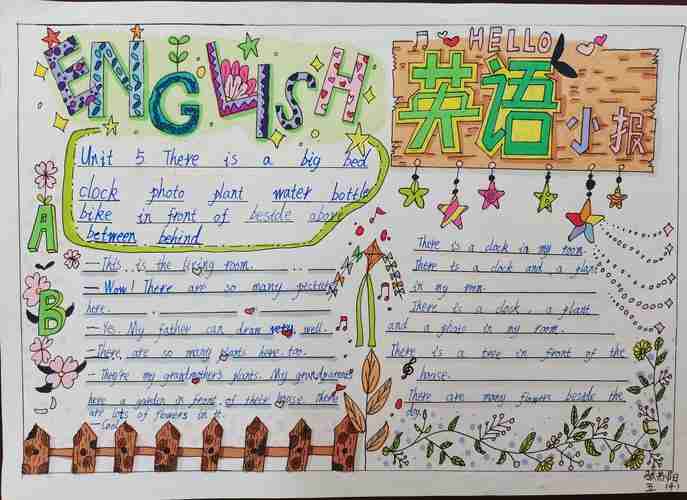 ENGLISH
Unit 5 There is a big bed
clock photo plant water bottle
bike in front of beside above
between behind
A
B
—This is the living room.
—Wow! There are so many pictures
here.
—Yes. My father can draw very well.
—There are so many plants here, too.
—They're my grandmother's plants. My grandparents
have a garden in front of their house. There
are lots of flowers in it.
—Cool
HELLO
英语
小报
There is a clock in my room.
There is a clock and a plant
in my room.
There is a clock, a plant
and a photo in my room.
There is a tree in front of the
house.
There are many flowers beside the
五